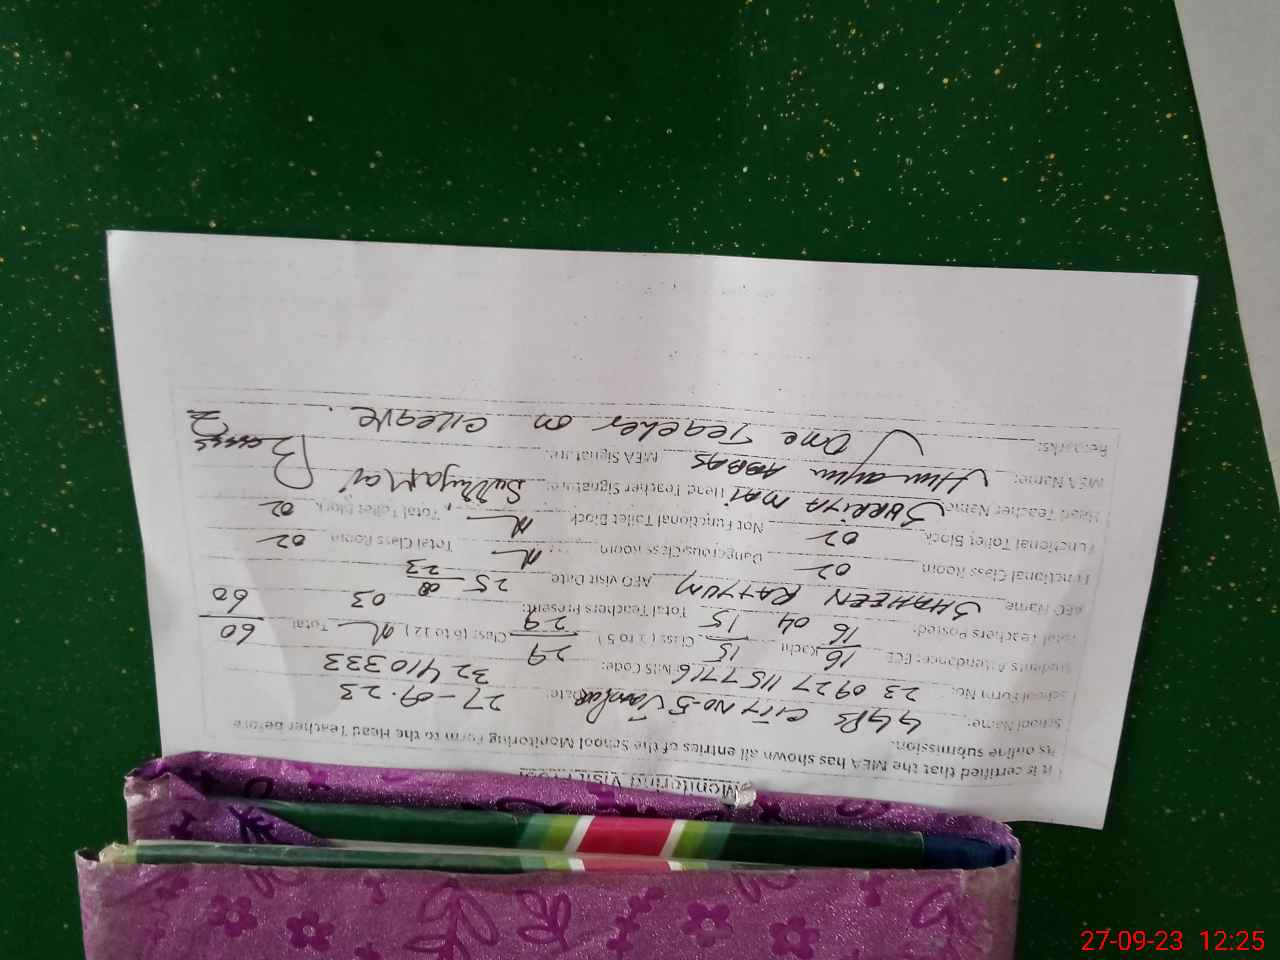 Monitoring Visit Proof
It is certified that the MEA has shown all entries of the School Monitoring Form to the Head Teacher before
its online submission.
School Name: GGPS CITY NO-5 Date: 27-09-23
School Form No: 23 0927 1157716 EMIS Code: 32410333
Student's Attendance: ECE 16/16 Kachi 15/15 Class (1 to 5) 29/29 Class (6 to 12) Total 60/60
Total Teachers Posted: 04 Total Teachers Present: 03
AEO Name SHAHEEN KAYYUM AEO Visit Date 25-08-23
Functional Class Room 02 Dangerous Class Room Total Class Room 02
Functional Toilet Block 02 Not Functional Toilet Block Total Toilet Block 02
Head Teacher Name: SURRIYA MAI Head Teacher Signature:
MEA Name: Humayun ABBAS MEA Signature:
Remarks: One Teacher on C/Leave.
27-09-23 12:25